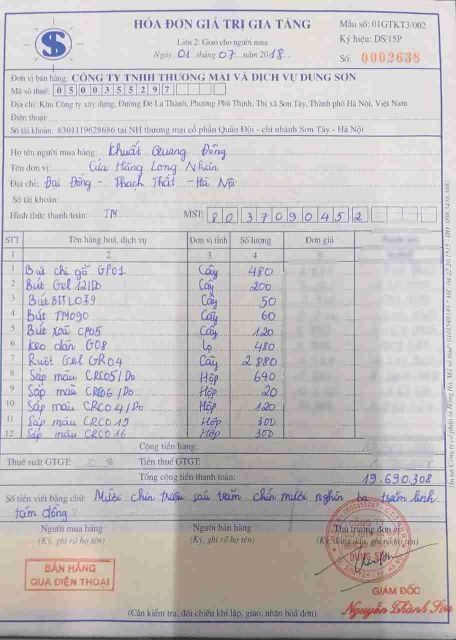 HÓA ĐƠN GIÁ TRỊ GIA TĂNG
Liên 2: Giao cho người mua
Ngày 01 tháng 07 năm 2018
Mẫu số: 01GTKT3/002
Ký hiệu: DS/15P
Số: 0002638
S
Đơn vị bán hàng: CÔNG TY TNHH THƯƠNG MẠI VÀ DỊCH VỤ DUNG SƠN
Mã số thuế: 0500355297
Địa chỉ: Khu Công ty xây dựng, Đường Đê La Thành, Phường Phú Thịnh, Thị xã Sơn Tây, Thành phố Hà Nội, Việt Nam
Điện thoại:
Số tài khoản: 8301119628686 tại NH thương mại cổ phần Quân Đội - chi nhánh Sơn Tây - Hà Nội
Họ tên người mua hàng: Khuất Quang Đông
Tên đơn vị: Cửa Hàng Long Nhân
Địa chỉ: Đại Đồng - Thạch Thất - Hà Nội
Số tài khoản:
Hình thức thanh toán: TM MST: 8037090452
STT Tên hàng hoá, dịch vụ Đơn vị tính Số lượng Đơn giá
1 2 3 4
1 Bút chì gỗ GP01 Cây 480
2 Bút Gel 12/Do Cây 200
3 Bút BITL079 Cây 50
4 Bút TM090 Cây 60
5 Bút xoá CP05 Cây 120
6 Keo dán G08 Lọ 480
7 Ruột Gel GR04 Cây 2.880
8 Sáp màu CRC05/Do Hộp 640
9 Sáp màu CRC06/Do Hộp 20
10 Sáp màu CRC04/Do Hộp 120
11 Sáp màu CRC015 Hộp 300
12 Sáp màu CRC016 Hộp 300
Cộng tiền hàng:
Thuế suất GTGT: 10 % Tiền thuế GTGT:
Tổng cộng tiền thanh toán: 19.690.308
Số tiền viết bằng chữ: Mười chín triệu sáu trăm chín mươi nghìn ba trăm linh
tám đồng
Người mua hàng Người bán hàng Thủ trưởng đơn vị
(Ký, ghi rõ họ tên) (Ký, ghi rõ họ tên) (Ký, đóng dấu, ghi rõ họ tên)
BÁN HÀNG
QUA ĐIỆN THOẠI
DUNG SƠN
GIÁM ĐỐC
Nguyễn Thành Sơn
(Cần kiểm tra, đối chiếu khi lập, giao, nhận hoá đơn)